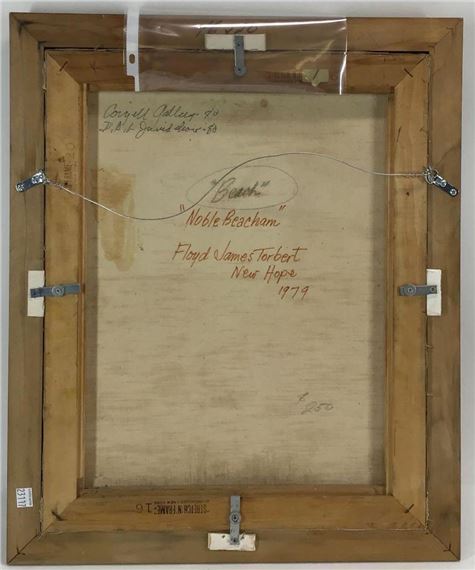 Coryell Gallery 80
"Beach"
"Noble Beacham"
Floyd James Torbert
New Hope
1979
250
23117
STRETCH'N'FRAME
16